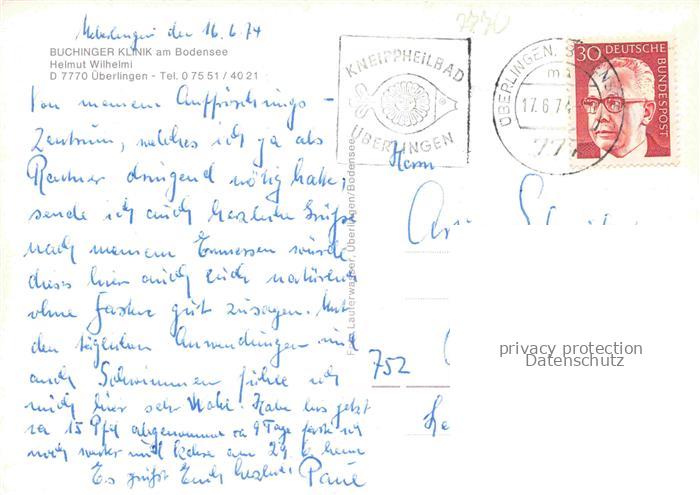 Ueberlingen den 16.6.74
7770
BUCHINGER KLINIK am Bodensee
Helmut Wilhelmi
D 7770 Überlingen - Tel. 0 75 51 / 40 21
KNEIPPHEILBAD
ÜBERLINGEN
ÜBERLINGEN,
17.6.74
777
30 DEUTSCHE
BUNDESPOST
Von meinem Auffrischungs -
Zentrum, welches ich ja als
Rentner dringend nötig hatte,
sende ich auch herzliche Grüße
nach meinem Ermessen würde
dies hier auch Euch natürlich
ohne Fasten gut zusagen. Mit
den täglichen Anwendungen und
auch Schwimmen fühle ich
mich hier sehr wohl. Habe bis jetzt
ca 15 Pfd abgenommen ca 9 Tage faste ich
noch weiter und kehre am 29.6. heim
Es grüßt Euch herzlich Paul
Foto Lauterwasser, Überlingen/Bodensee
Herrn
752
privacy protection
Datenschutz